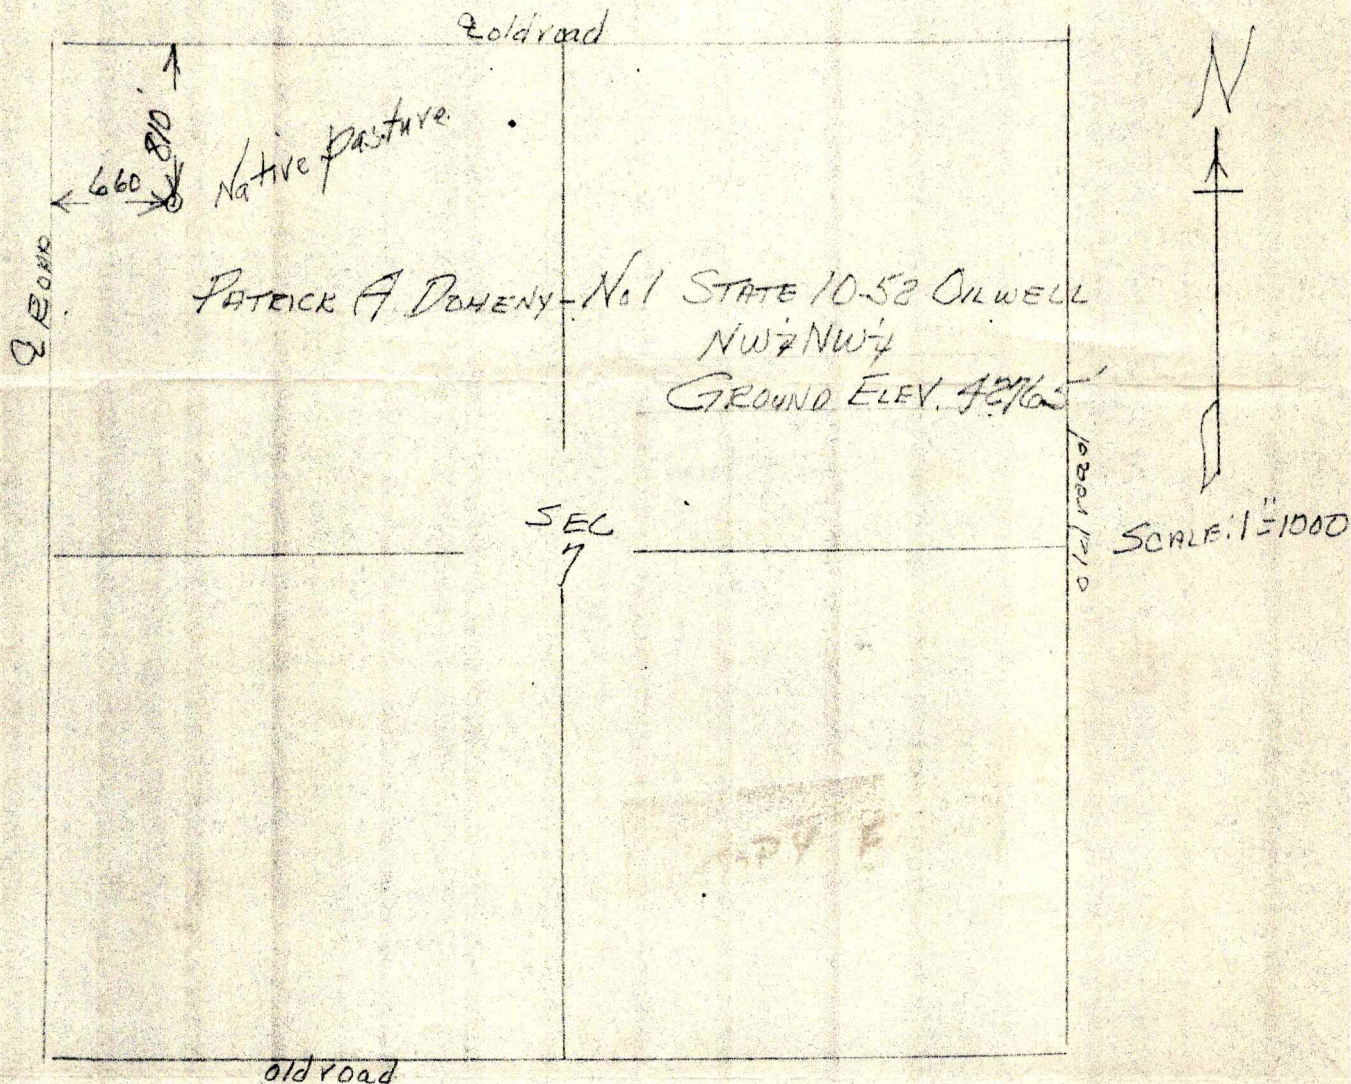 ℄ old road
N
810'
660
Native pasture
℄ ROAD
PATRICK A. DOHENY - No. 1 STATE 10-52 OILWELL
NW¼NW¼
GROUND ELEV. 4276.5'
old road
SEC
7
SCALE: 1"=1000
old road